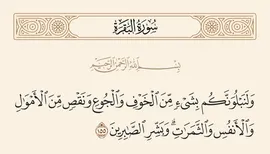 سُورَةُ البَقَرَةِ
بِسْمِ اللَّهِ الرَّحْمَٰنِ الرَّحِيمِ
وَلَنَبْلُوَنَّكُم بِشَىْءٍ مِّنَ الْخَوْفِ وَالْجُوعِ وَنَقْصٍ مِّنَ الْأَمْوَٰلِ
وَالْأَنفُسِ وَالثَّمَرَٰتِ ۗ وَبَشِّرِ الصَّٰبِرِينَ ١٥٥